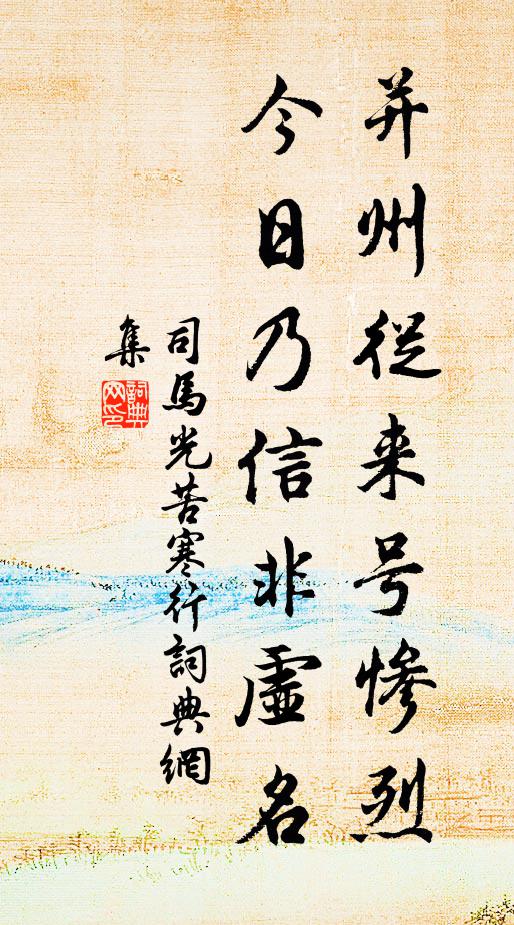 并州從来号慘烈
今日乃信非虛名
司馬光苦寒行詞典網
集
詞典
网印